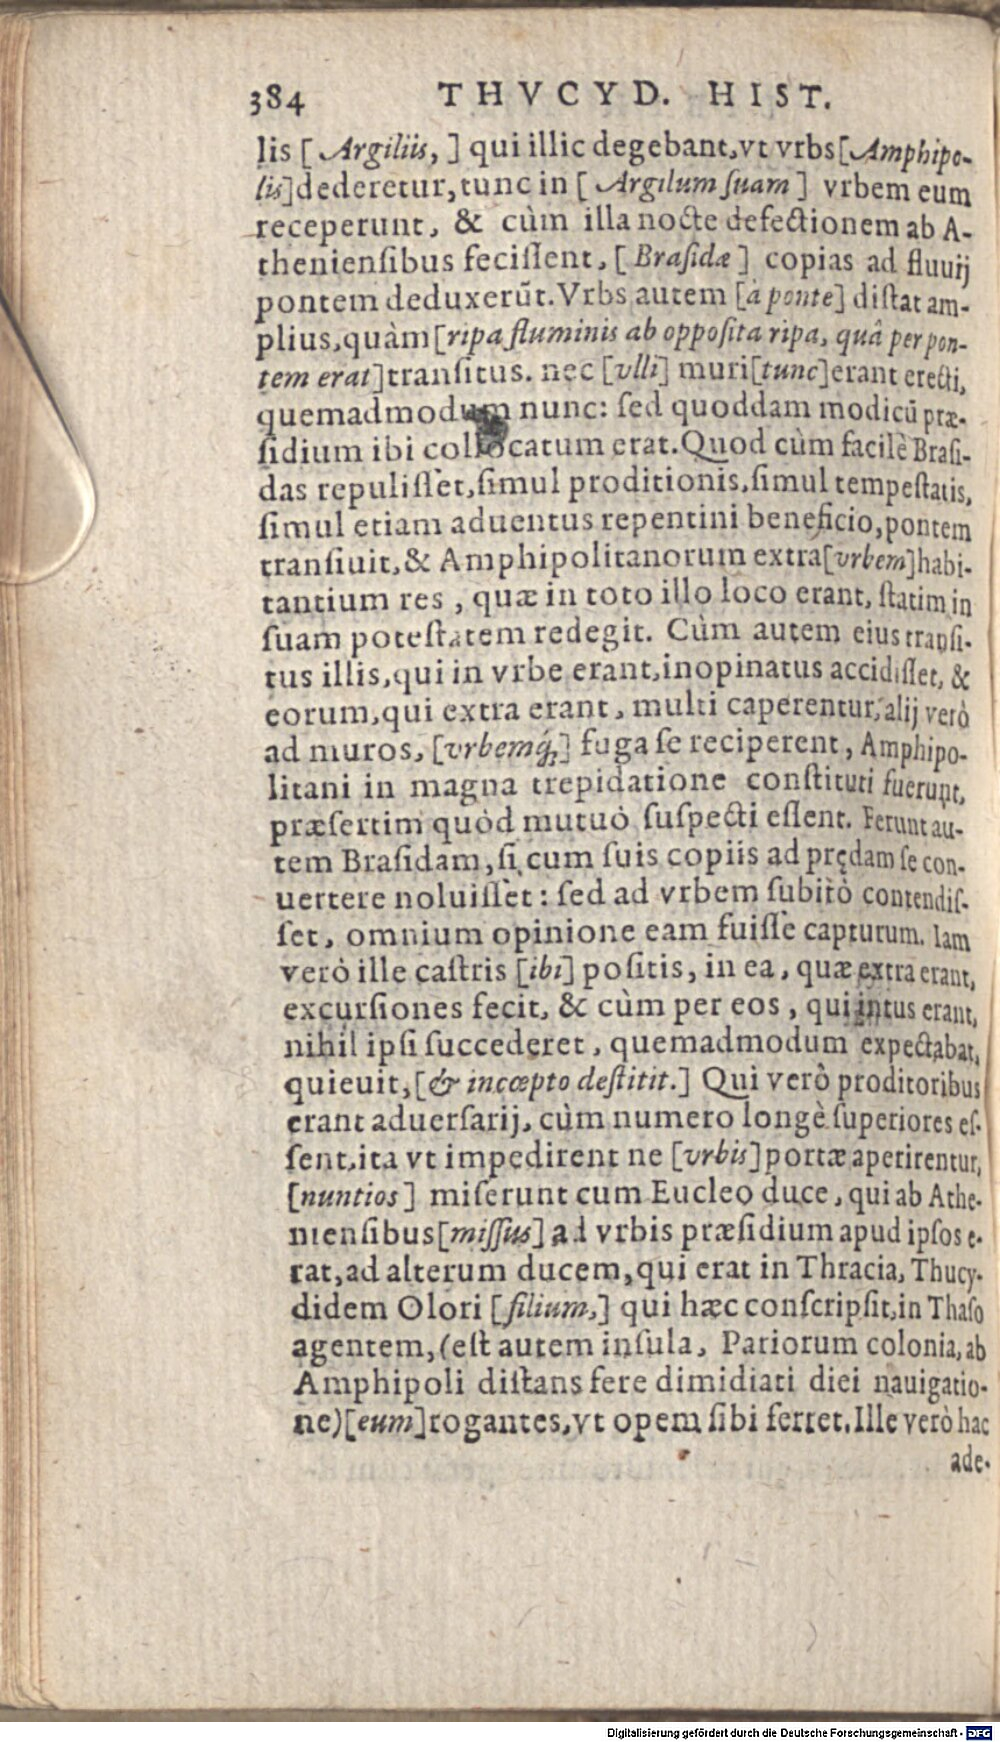 384 THVCYD. HIST.
lis [Argiliis,] qui illic degebant, vt vrbs [Amphipo-
lis] dederetur, tunc in [Argilum suam] vrbem eum
receperunt, & cùm illa nocte defectionem ab A-
theniensibus fecissent, [Brasidæ] copias ad fluuij
pontem deduxerũt. Vrbs autem [à ponte] distat am-
plius, quàm [ripa fluminis ab opposita ripa, quâ per pon-
tem erat] transitus. nec [vlli] muri [tunc] erant erecti,
quemadmodum nunc: sed quoddam modicũ præ-
sidium ibi collocatum erat. Quod cùm facilè Brasi-
das repulisset, simul proditionis, simul tempestatis,
simul etiam aduentus repentini beneficio, pontem
transiuit, & Amphipolitanorum extra [vrbem] habi-
tantium res, quæ in toto illo loco erant, statim in
suam potestatem redegit. Cùm autem eius transi-
tus illis, qui in vrbe erant, inopinatus accidisset, &
eorum, qui extra erant, multi caperentur, alij verò
ad muros, [vrbemq́;] fuga se reciperent, Amphipo-
litani in magna trepidatione constituti fuerunt,
præsertim quòd mutuò suspecti essent. Ferunt au-
tem Brasidam, si cum suis copiis ad prędam se con-
uertere noluisset: sed ad vrbem subitò contendis-
set, omnium opinione eam fuisse capturum. Iam
verò ille castris [ibi] positis, in ea, quæ extra erant,
excursiones fecit, & cùm per eos, qui intus erant,
nihil ipsi succederet, quemadmodum expectabat,
quieuit, [& incœpto destitit.] Qui verò proditoribus
erant aduersarij, cùm numero longè superiores es-
sent, ita vt impedirent ne [vrbis] portæ aperirentur,
[nuntios] miserunt cum Eucleo duce, qui ab Athe-
niensibus [missus] ad vrbis præsidium apud ipsos e-
rat, ad alterum ducem, qui erat in Thracia, Thucy-
didem Olori [filium,] qui hæc conscripsit, in Thaso
agentem, (est autem insula, Pariorum colonia, ab
Amphipoli distans fere dimidiati diei nauigatio-
ne) [eum] rogantes, vt opem sibi ferret. Ille verò hac
ade-
Digitalisierung gefördert durch die Deutsche Forschungsgemeinschaft - DFG